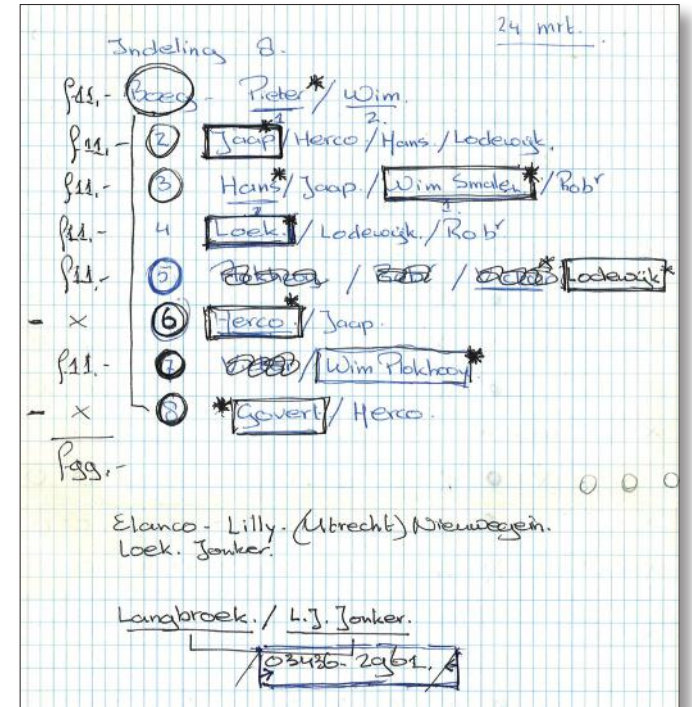 24 mrt.
Indeling 8.
ƒ11,- Boeg - Pieter* / Wim.
1 2.
ƒ11,- 2 Jaap* / Herco / Hans / Lodewijk.
ƒ11,- 3 Hans* / Jaap. / Wim Smalen* / Rob r
2 1.
ƒ11,- 4 Loek.* / Lodewijk. / Rob r
ƒ11.- 5 / / Lodewijk*
- x 6 Herco.* / Jaap.
ƒ11.- 7 / Wim Plokhooy*
- x 8 *Govert / Herco.
ƒ99,-
Elanco - Lilly. (Utrecht) Nieuwegein.
Loek. Jonker.
Langbroek. / L.J. Jonker.
03436-2961.